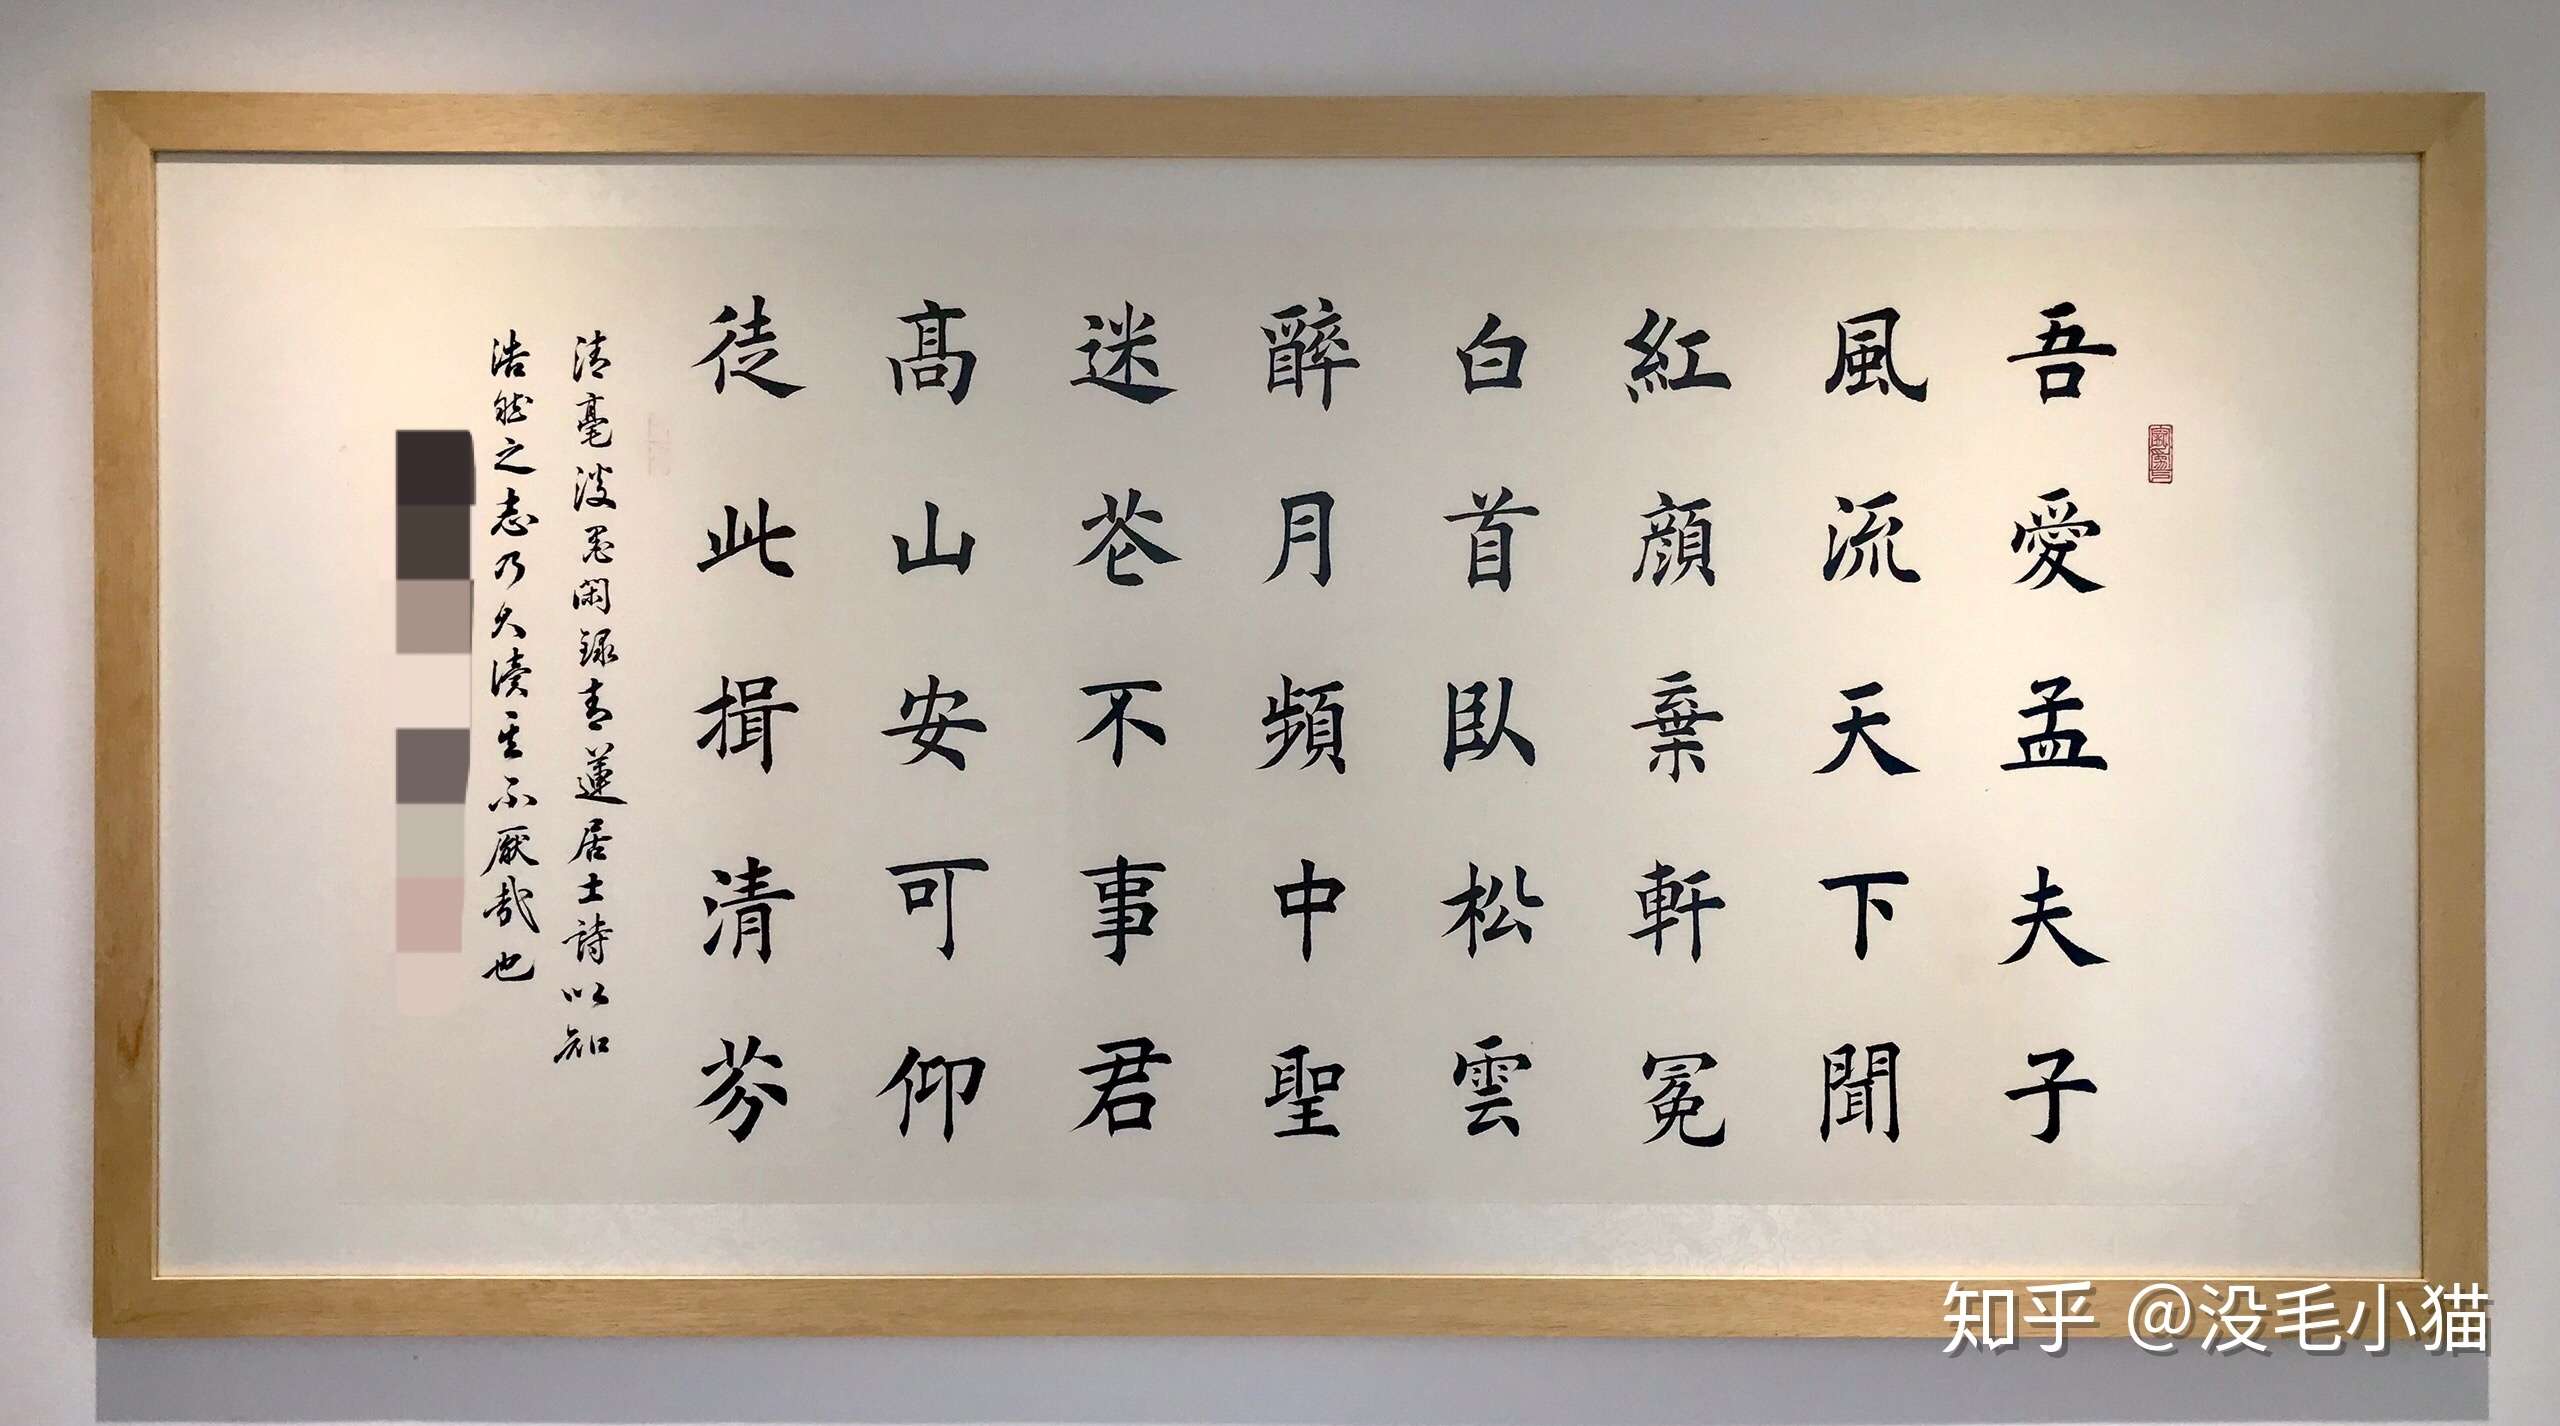 吾愛孟夫子
風流天下聞
紅顔棄軒冕
白首臥松雲
醉月頻中聖
迷花不事君
高山安可仰
徒此揖清芬
清毫淡墨閑録青蓮居士詩以知
浩然之志乃久讀至不厭哉也
知乎 @没毛小猫